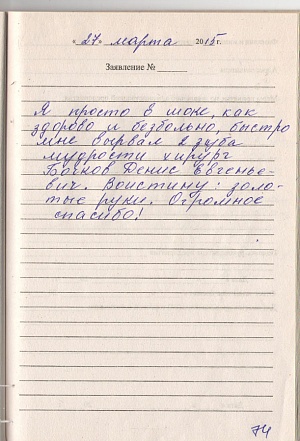 «27» марта 2015г.
Заявление № ____
Я просто в шоке, как
здорово и безбольно, быстро
мне вырвал 2 зуба
мудрости хирург
Бочков Денис Евгенье-
вич. Воистину: золо-
тые руки. Огромное
спасибо!
74